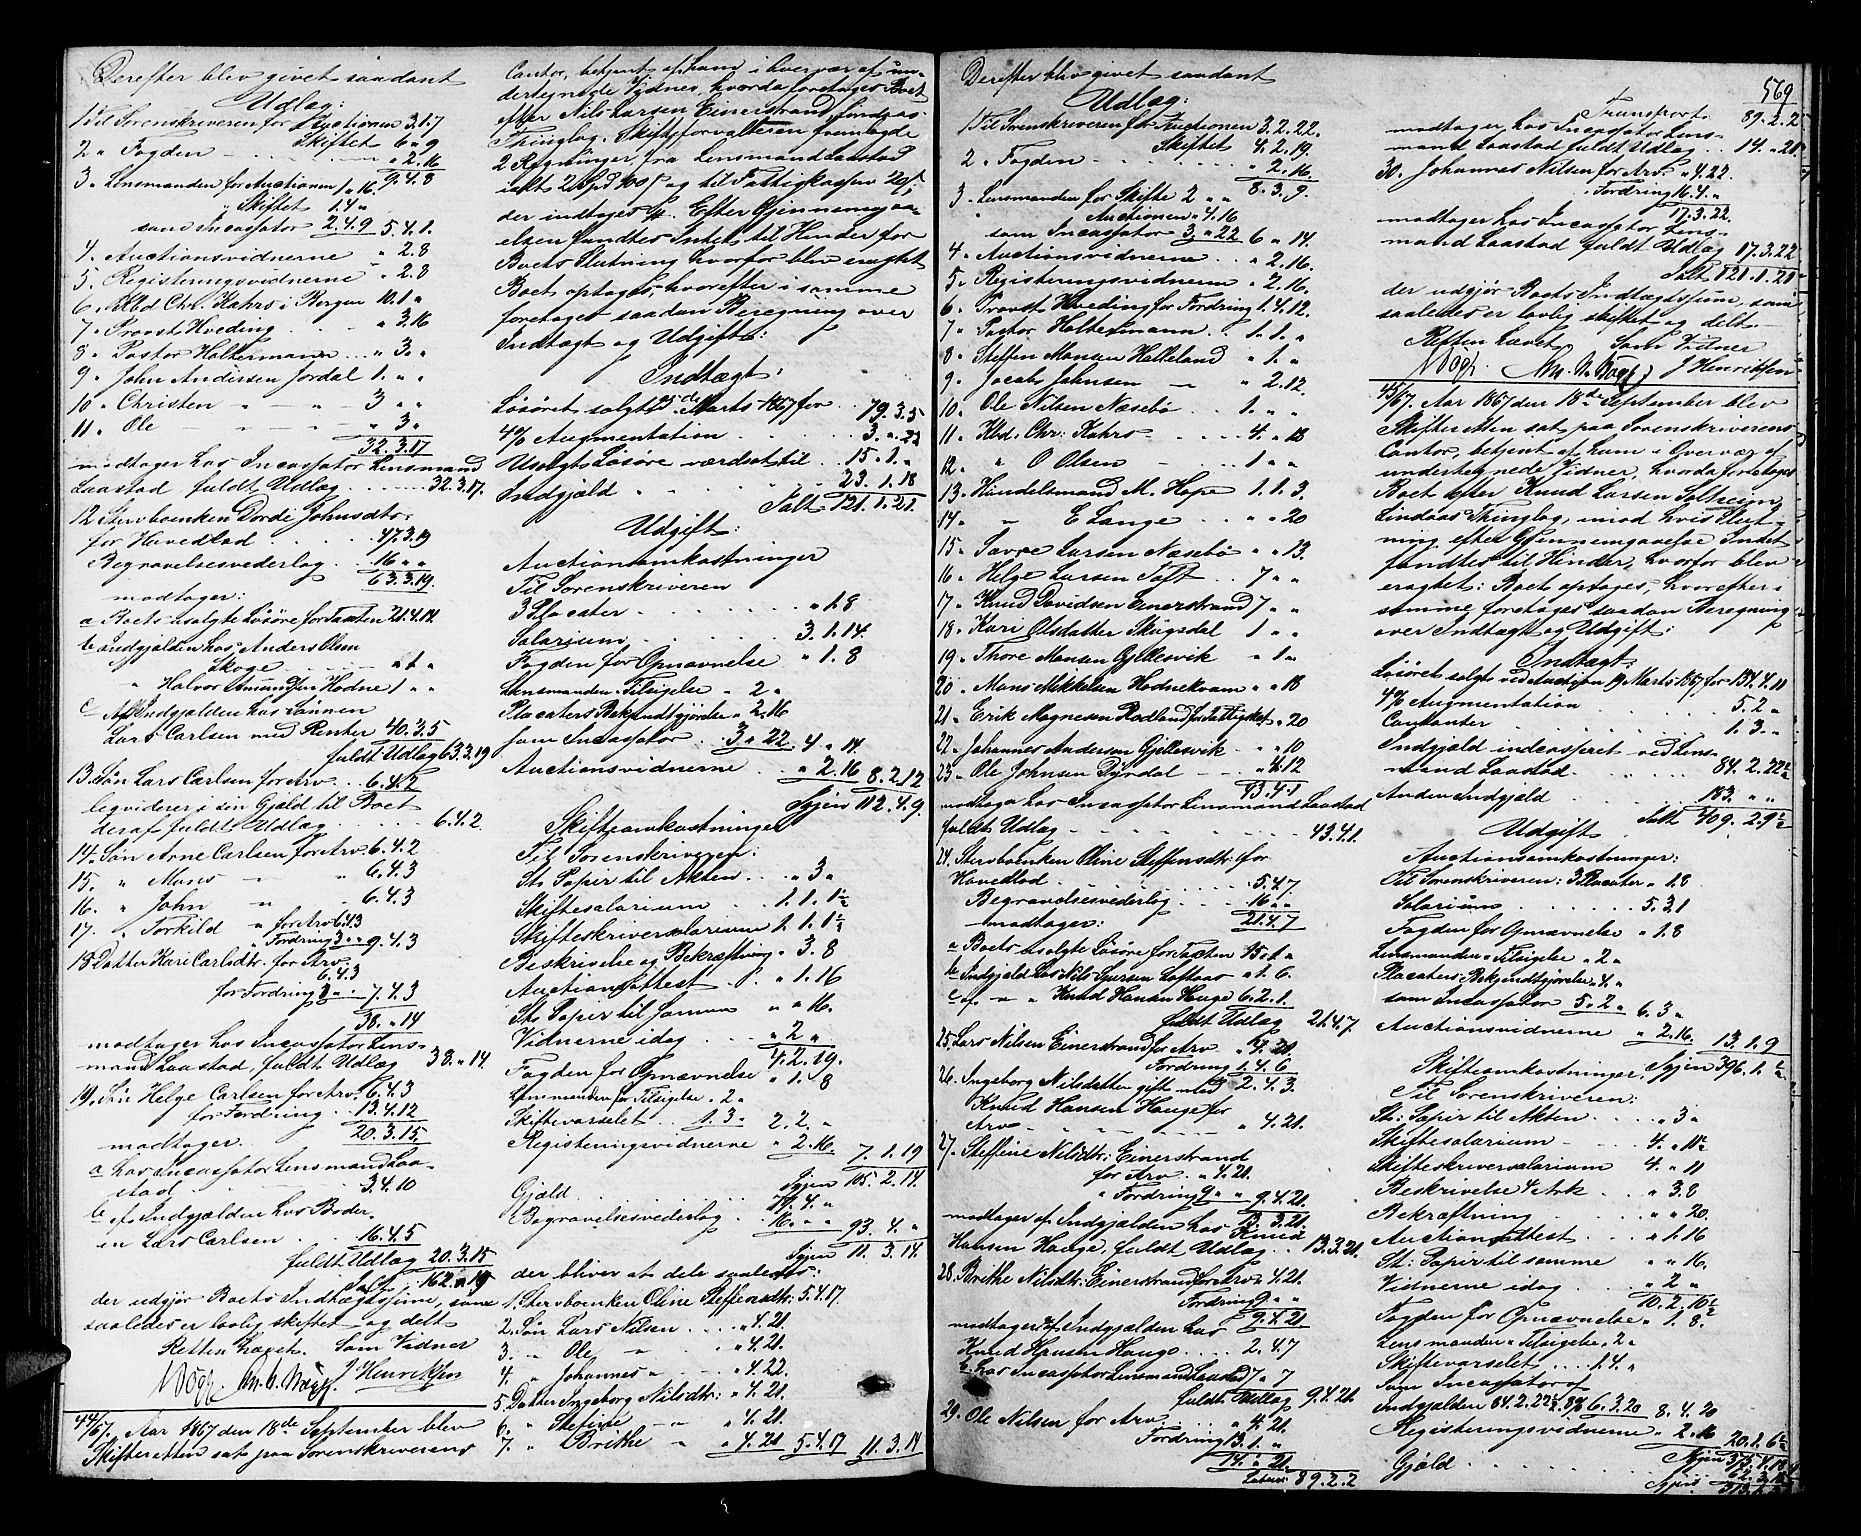 Derefter blev givet saadant
Udlæg:
1. Til Sorenskriveren for Auctionen 3.1.7
Skiftet 6 " 9
2 " Fogden " 2.16
9.4.8
3 " Lensmanden for Auctionen 1 " 16
" Skiftet 1.4 "
som Incassator 2.4.9 5.4.1.
4 " Auctionsvidnerne " 2.8
5 " Registeringsvidnerne " 2.8
6 " Kbd Chr. Kahrs i Bergen 10.1 "
7 " Provst Hveding " 3.16
8 " Pastor Haltermann " 3 "
9 " John Andersen Jordal 1 " "
10 " Christen — " 3 " "
11 " Ole — " 3 "
32.3.17
modtager hos Incassator Lensmand
Laastad fuldt Udlæg 32.3.17.
12 Stervboenken Dorde Johnsdtr.
for Hovedlod 47.3.19
Begravelsesvederlag 16 " "
63.3.19.
modtager:
a Boets usolgte Løsøre for Taxten 21.4.14.
b Indgjælden hos Anders Olsen
Skoge " 1 "
" Halvor Amundsen Hodne 1 " "
c Af Indgjælden hos Sønnen
Lars Carlsen med Renter 40.3.5
fuldt Udlæg 63.3.19
13. Søn Lars Carlsen for Arv 6.4.2
leqviderer i sin Gjæld til Boet
deraf fuldt Udlæg 6.4.2.
14. Søn Arne Carlsen for Arv 6.4.2
15. " Mons — " 6.4.3
16. " John — " 6.4.3
17. " Torkild " for Arv 6.4.3
" Fordring 3 " " 9.4.3
18 Datter Kari Carlsdtr. for Arv
6.4.3
for Fordring 1 " " 7.4.3
38. " 14
modtager hos Incassator Lens-
mand Laastad, fuldt Udlæg 38. " 14.
19. Søn Helge Carlsen for Arv 6.4.3
for Fordring 13.4.12
20.3.15.
modtager
a hos Incassator Lensmand Laa-
stad 3.4.10
b af Indgjælden hos Broder
en Lars Carlsen 16.4.5
fuldt Udlæg 20.3.15
Talt 162 " 19
der udgjør Boets Indtægtssum, som
saaledes er lovlig skiftet og delt
Retten hævet. Som Vidner
J Henriksen
44/67. Aar 1867 den 18de September blev
Skifteretten sat paa Sorenskriverens
Contor, betjent af ham i Overvær af un-
dertegnede Vidner, hvorda foretoges Boet
efter Nils Larsen Einerstrand, Lindaas
Thinglag. Skifteforvalteren fremlagde
2 Regninger, fra Lensmand Laastad
ialt 2 Spd 100 s og til Fattigkassen 20 s,
der indtages. Efter Gjennemgaa-
elsen fandtes Intet til Hinder for
Boets Slutning, hvorfor blev eragtet
Boet optages, hvorefter i samme
foretoges saadan Beregning over
Indtægt og Udgift:
Indtægt:
Løsøret solgt 25de Marts 1867 for 79.3.5
4% Augmentation 3. " 22
Usolgt Løsøre værdsat til 15.1. "
Indgjæld 23.1.18
Talt 121.1.21.
Udgift:
Auctionsomkostninger
Til Sorenskriveren
3 Placater " 1.8
Salarium 3.1.14.
Fogden for Opnævnelse " 1.8
Lensmanden " Tilsigelse " 2 "
Placaters Bekjendtgjørelse " 2.16
som Incassator 3 " 22 4 " 14.
Auctionsvidnerne " 2.16 8.2.12
Igjen 112.4.9.
Skifteomkostninger
Til Sorenskriveren:
St. Papir til Akten " 3 "
Skiftesalarium 1.1.1½
Skifteskriversalarium 1.1.1½
Beskrivelse og Bekræftning " 3.8
Auctionsattest " 1.16
St. Papir til samme " " 16.
Vidnerne idag " 2 "
4.2.19.
Fogden for Opnævnelse " 1.8
Lensmanden for Tilsigelse " 2 "
Skiftevarselet 1.3 " 2.2. "
Registeringsvidnerne " 2.16. 7.1.19
Igjen 105.2.14.
Gjæld 77.4. "
Begravelsesvederlag 16. " " 93.4. "
Igjen 11.3.14.
der bliver at dele saaledes:
1. Stervboenken Oline Steffensdtr. 5.4.17.
2. Søn Lars Nilsen " 4.21.
3. " Ole — " 4.21.
4. " Johannes " " 4.22.
5 Datter Ingeborg Nilsdtr: " 4.21.
6. " Stefine — " 4.21.
7. " Brithe " " 4.21 5.4.17 11.3.14
Derefter blev givet saadant
Udlæg:
1. Til Sorenskriveren for Auctionen 3.2.22.
Skiftet 4.2.19.
2 " Fogden " 2.16.
8.3.9.
3 " Lensmanden for Skifte 2 " "
" Auctionen " 4.16
som Incassator 3 " 22 6 " 14.
4 " Auctionsvidnerne " 2.16.
5 " Registeringsvidnerne " 2.16.
6 " Provst Hveding for Fordring 1.4.12.
7 " Pastor Haltermann 1.1. "
8 " Steffen Monsen Halleland " 1 "
9 " Jacob Johnsen — " 2.12.
10 " Ole Nilsen Næsebø 1. " "
11 " Kbd. Chr: Kahrs 4. " 18
12 " " O Olsen 1 " "
13 " Handelsmand M. Hope 1.1.3.
14 " — E Lange " " 20
15 " Lavre Larsen Næsebø " " 13.
16 " Helge Larsen Toft 7 " "
17 " Knud Davidsen Einerstrand 7 " "
18 " Kari Olsdatter Skugsdal 1 " "
19 " Thore Monsen Gjellesvik " 1 "
20 " Mons Mikkelsen Hodnekvam " " 18
21 " Erik Magnesen Rødland for Fattigkst " 20
22 " Johannes Andersen Gjellesvik " " 10
23 " Ole Johnsen Dyrdal " 4.12
43.4.1
modtager hos Incassator Lensmand Laastad
fuldt Udlæg 43.4.1.
24. Stervboenken Oline Steffensdtr. for
Hovedlod 5.4.7.
Begravelsesvederlag 16 " "
modtager: 21.4.7
a Boets usolgte Løsøre for Taxten 15.1. "
b Indgjæld hos Nils Loftaas " 1.6.
c af " " Knud Hansen Hauge 6.2.1.
fuldt Udlæg 21.4.7.
25. Lars Nilsen Einerstrand for Arv " 4.21
Fordring 1.4.6
2.4.3.
26. Ingeborg Nilsdatter gift med
Knud Hansen Hauge for
Arv " 4.21.
27 " Steffine Nilsdtr: Einerstrand
for Arv " 4.21.
" Fordring 9 " " 9.4.21.
13.3.21.
modtager af Indgjælden hos Knud
Hansen Hauge, fuldt Udlæg 13.3.21.
28. Brithe Nilsdtr: Einerstrand for Arv " 4.21.
Fordring 9 " "
9.4.21
modtager af Indgjælden hos
Knud Hansen Hauge 2.4.7
b. hos Incassator Lensmand Laastad 7 " 7
fuldt Udlæg 9.4.21.
29. Ole Nilsen for Arv " 4.21.
Fordring 13.1. "
14. " 21.
Lateris 89.2.2
569
Transport 89.2.2
modtager hos Incassator Lens-
mand Laastad fuldt Udlæg 14. " 21.
30. Johannes Nilsen for Arv " 4.22.
" Fordring 16.4. "
17.3.22.
modtager hos Incassator Lens-
mand Laastad fuldt Udlæg 17.3.22
Talt 121.1.21
der udgjør Boets Indtægtssum, som
saaledes er lovlig skiftet og delt.
Retten hævet Som Vidner
J Henriksen
45/67. Aar 1867 den 18de September blev
Skifteretten sat paa Sorenskriverens
Contor, betjent af ham i Overvær af
undertegnede Vidner, hvorda foretoges
Boet efter Knud Larsen Solheim
Lindaas Thinglag, imod hvis Slut-
ning efter Gjennemgaaelse Intet
fandtes til Hinder, hvorfor blev
eragtet: Boet optages, hvorefter i
samme foretages saadan Beregning
over Indtægt og Udgift:
Indtægt:
Løsøret solgt ved Auction 19 Marts 1867 for 134.4.11
4% Augmentation 5.2 "
Contanter 1.3. "
Indgjæld incasseret ved Lens-
mand Laastad 84.2.22½
Anden Indgjæld 183. " "
Talt 409.2.9½
Udgift
Auctionsomkostninger:
Til Sorenskriveren: 3 Placater " 1.8
Salarium 5.3.1
Fogden for Opnævnelse " 1.8
Lensmanden " Tilsigelse " 2 "
Placaters Bekjendtgjørelse " 4. "
som Incassator 5.2 " 6.3 "
Auctionsvidnerne " 2.16. 13.1.9
Igjen 396.1.½
Skifteomkostninger
Til Sorenskriveren:
St: Papir til Akten " 3 "
Skiftesalarium 4. " 11½
Skifteskriversalarium 4. " 11
Beskrivelse 4 Ark " 3.8
Bekræftning " " 20.
Auctionsattest " 1.16
St: Papir til samme " " 16.
Vidnerne idag " 2 "
10.2.10½
Fogden for Opnævnelse " 1.8.
Lensmanden " Tilsigelse " 2 "
Skiftevarselet 1.4. "
Som Incassator af
Indgjælden 84.2.22½ 8% 6.3.20 8.4.20
Registeringsvidnerne " 2.16 20.1.6½
Igjen 375.4.18
Gjæld 62.3.15
Igjen